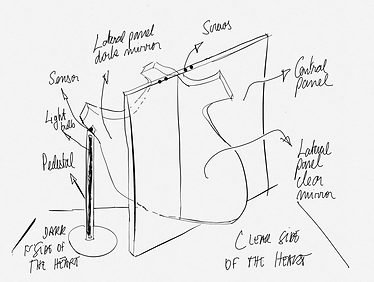 Lateral panel
dark mirror
Screws
Sensor
Central
panel
Light
bulb
Pedestal
Lateral
panel
clear
mirror
DARK
SIDE OF
THE HEART
CLEAR SIDE
OF THE HEART